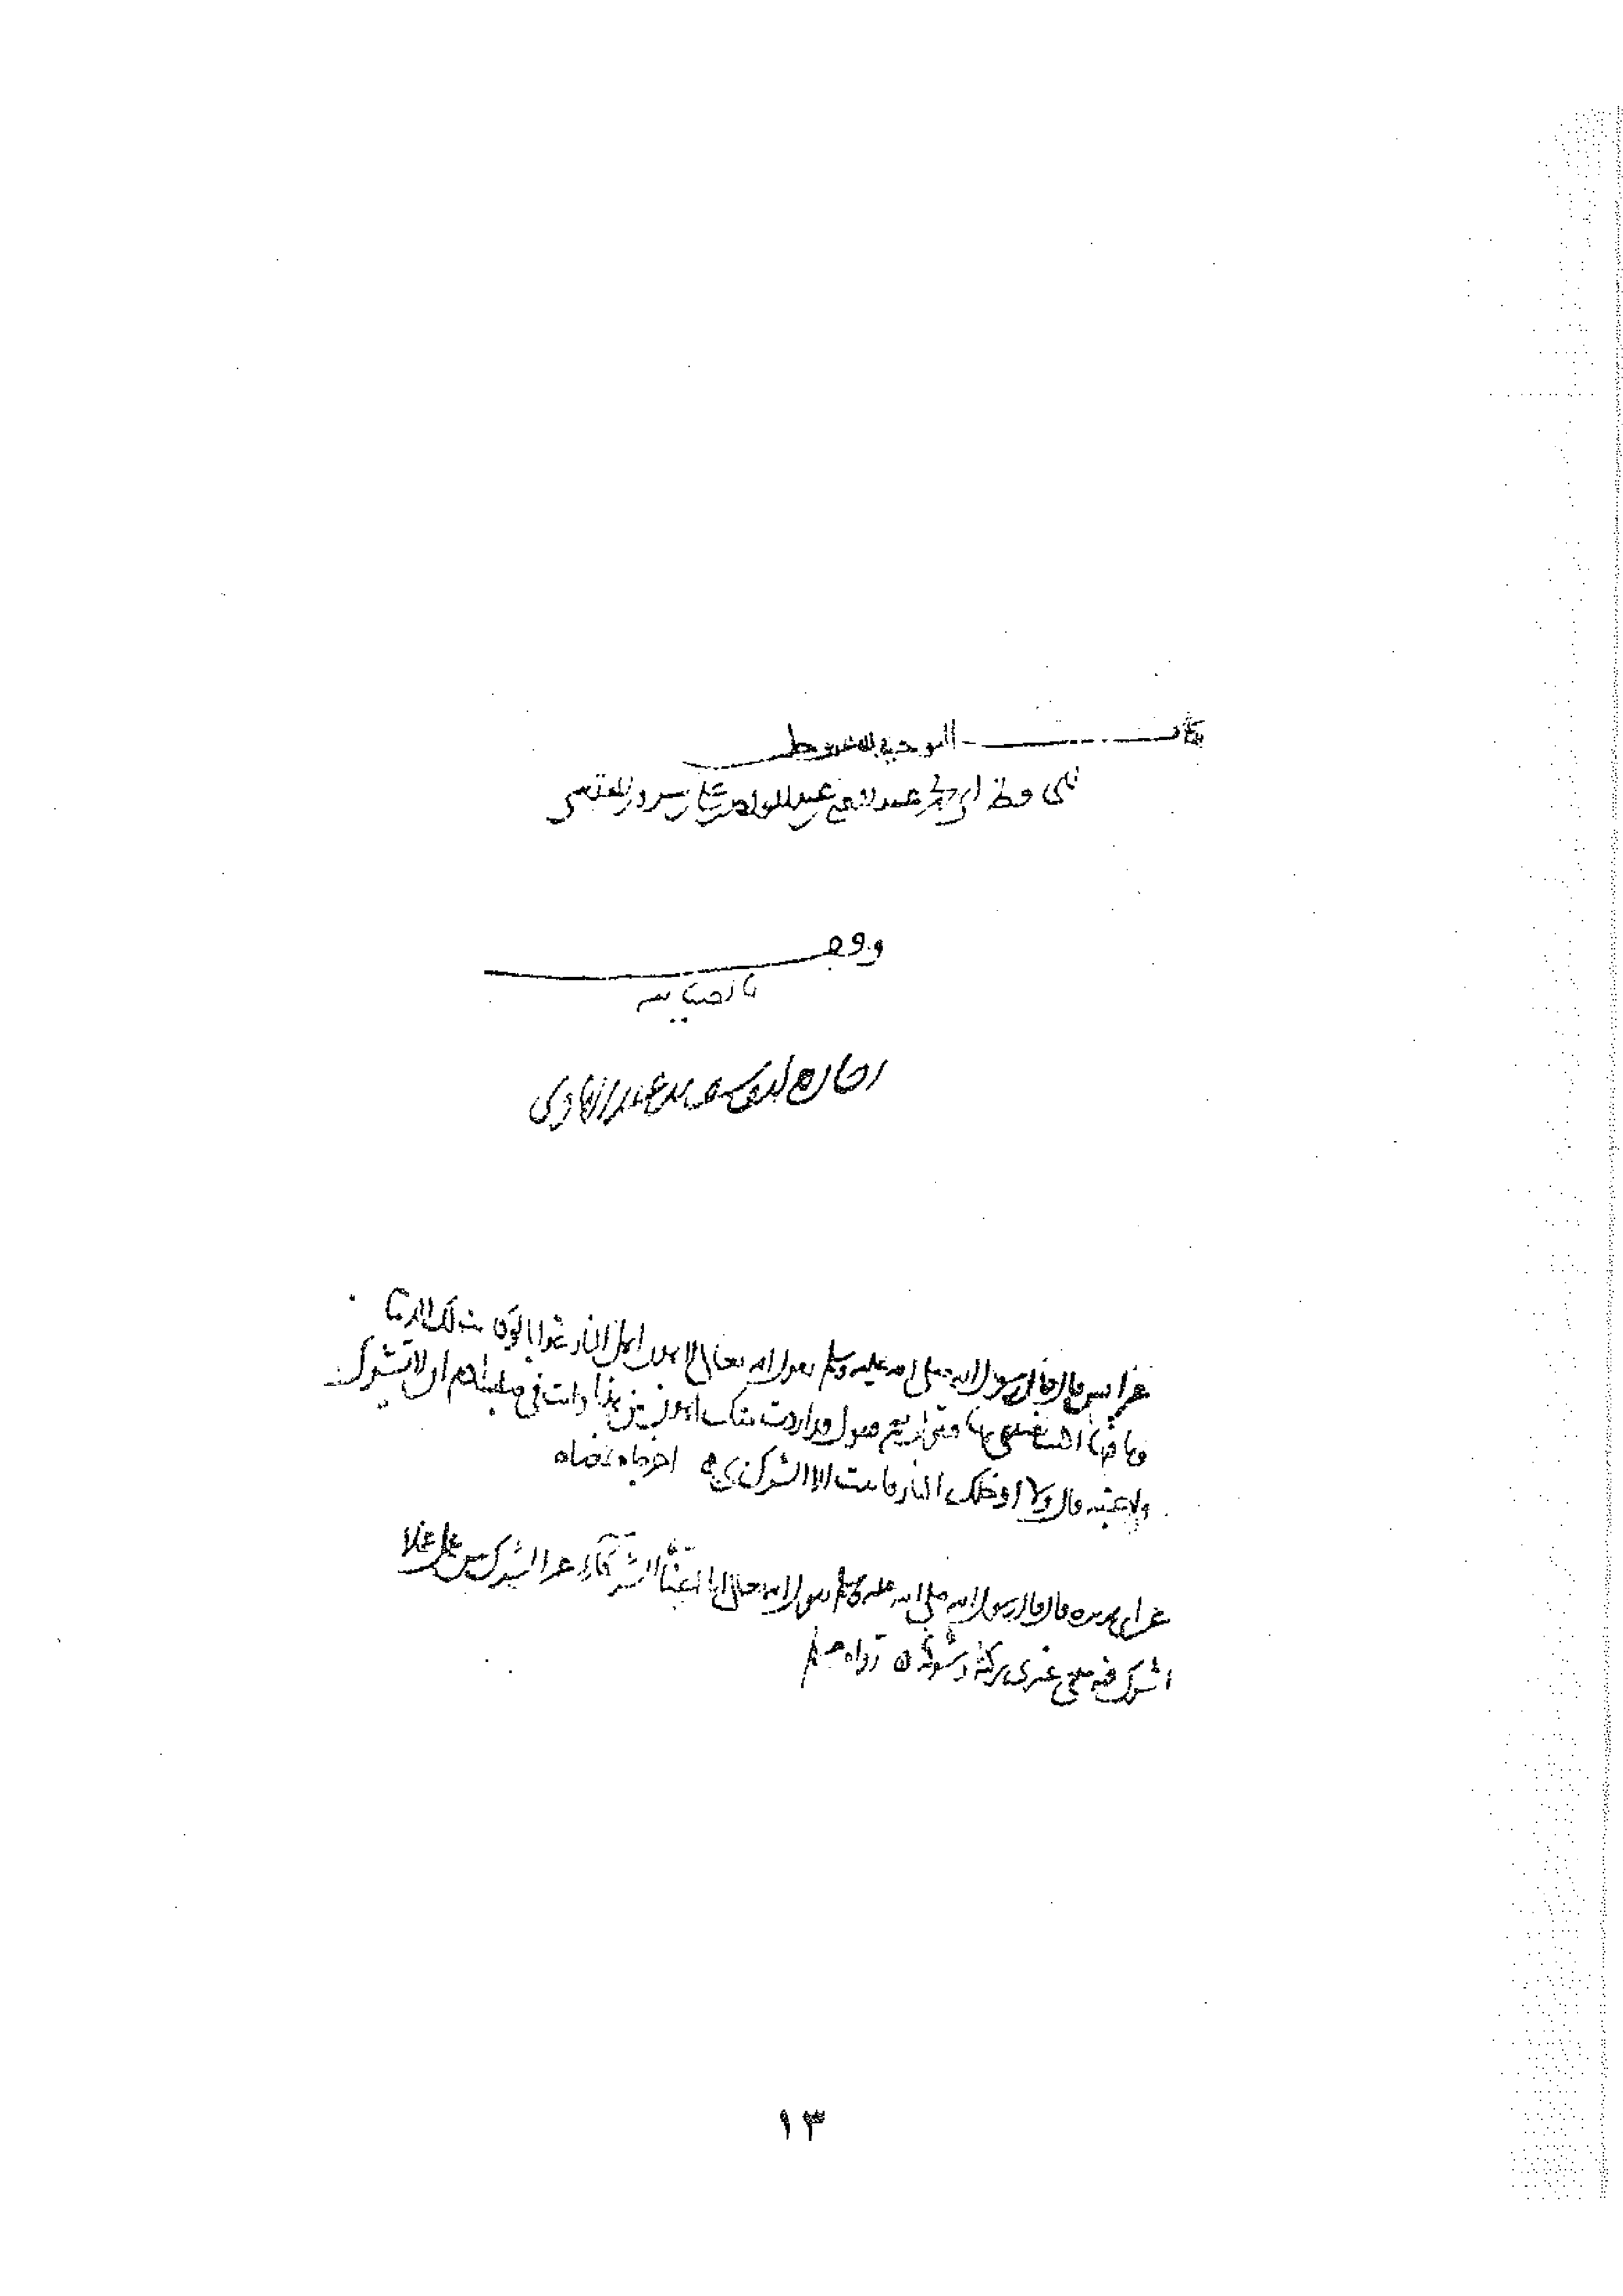 كتاب التوحيد لله عز وجل
للحافظ أبي محمد عبد الغني بن عبد الواحد بن علي بن سرور المقدسي
وقف
بالضيائية
يوسف بن عبد الهادي
عن انس قال قال رسول الله صلى الله عليه وسلم يقول الله تعالى لاهون اهل النار عذابا لو كانت لك الدنيا
وما فيها اكنت تفتدي بها فيقول نعم فيقول قد اردت منك اهون من هذا وانت في صلب ادم ان لا تشرك
قال ولا ادخلك النار فابيت الا الشرك اخرجاه
عن ابي هريرة قال قال رسول الله صلى الله عليه وسلم يقول الله تعالى انا اغنى الشركاء عن الشرك من عمل عملا
اشرك فيه معي غيري تركته وشركه رواه مسلم
١٣